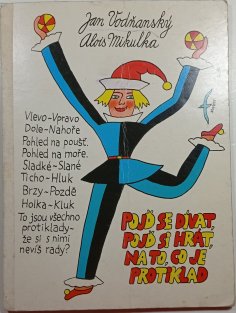 Jan Vodňanský
Alois Mikulka
Vlevo-Vpravo
Dole-Nahoře
Pohled na poušť.
Pohled na moře.
Sladké-Slané
Ticho-Hluk
Brzy-Pozdě
Holka-Kluk
To jsou všechno
protiklady-
že si s nimi
nevíš rady?
POJĎ SE DÍVAT,
POJĎ SI HRÁT,
NA TO, CO JE
PROTIKLAD